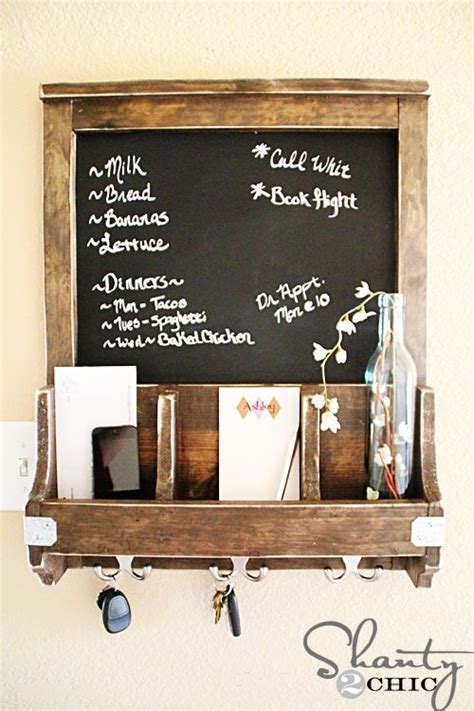 ~Milk
~Bread
~Bananas
~Lettuce
*Call Whit
*Book flight
~Dinners~
~Mon= Tacos
~Tues= Spaghetti
~Wed~ Baked Chicken
Dr. Appt.
Mon @ 10
Ashley
Shanty
2CHIC